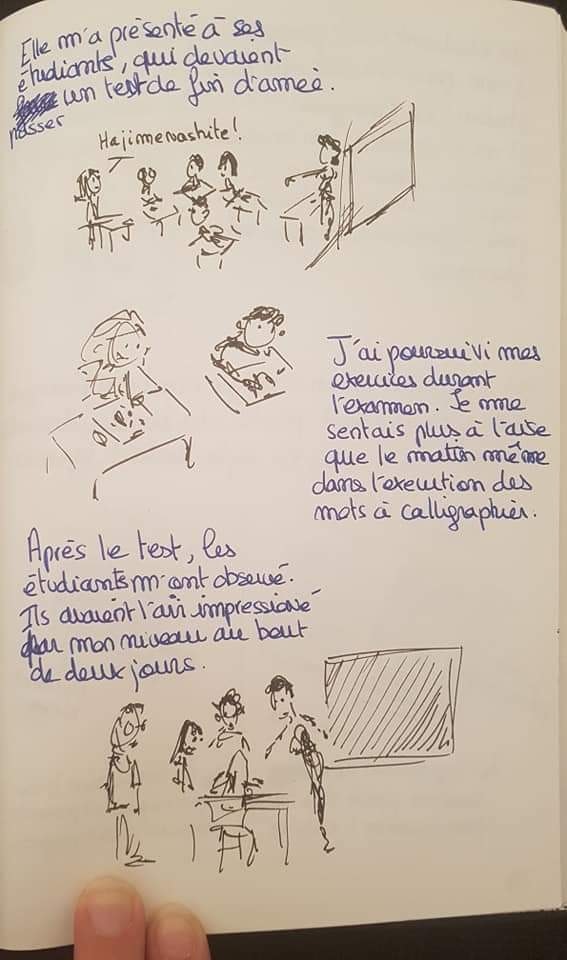 Elle m'a présenté à ses
étudiants, qui devaient
passer un test de fin d'année.
Hajimemashite!
J'ai poursuivi mes
exercices durant
l'examen. Je me
sentais plus à l'aise
que le matin même
dans l'execution des
mots à calligraphier.
Après le test, les
étudiants m'ont observé.
Ils avaient l'air impressioné
par mon niveau au bout
de deux jours.